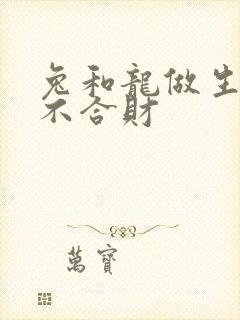 兔和龍做生
不合財
萬寶